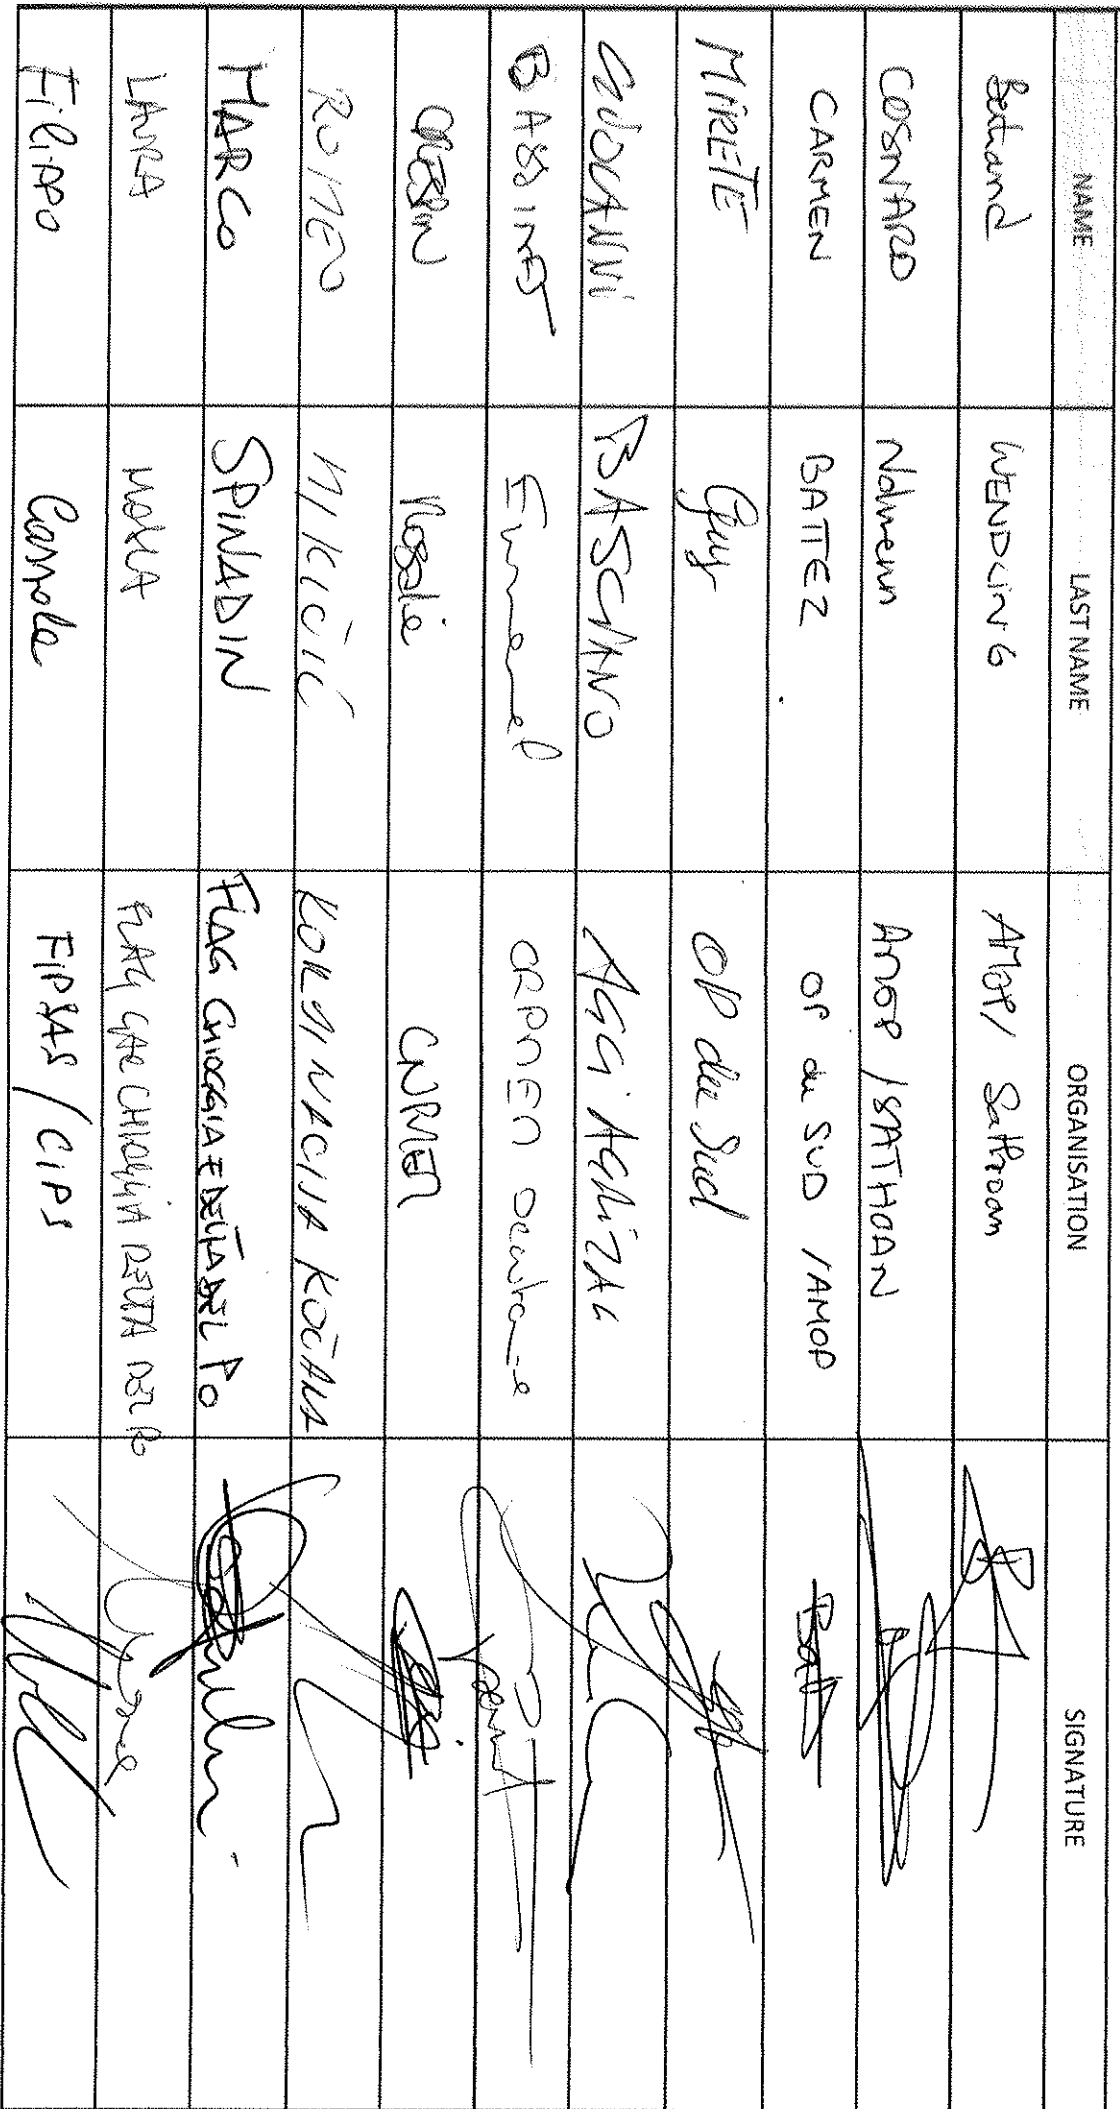 NAME LAST NAME ORGANISATION SIGNATURE
Bertrand WENDLING AMOP/ Sathoan
COSNARD Nolwenn AMOP / SATHOAN
CARMEN BATTEZ OP du SUD / AMOP
MIRETE Guy OP du Sud
GIOVANNI BASCIANO AGCI AGRITAL
BASSINET Emmanuel CRPMEM Occitanie
CRESPIN Rosalie CNPMEM
ROMEO MIKIČIĆ KOČARA
MARCO SPINADIN FLAG CHIOGGIA E DELTA DEL PO
LAURA FLAG GAC CHIOGGIA DELTA DEL PO
Filippo FIPSAS / CIPS